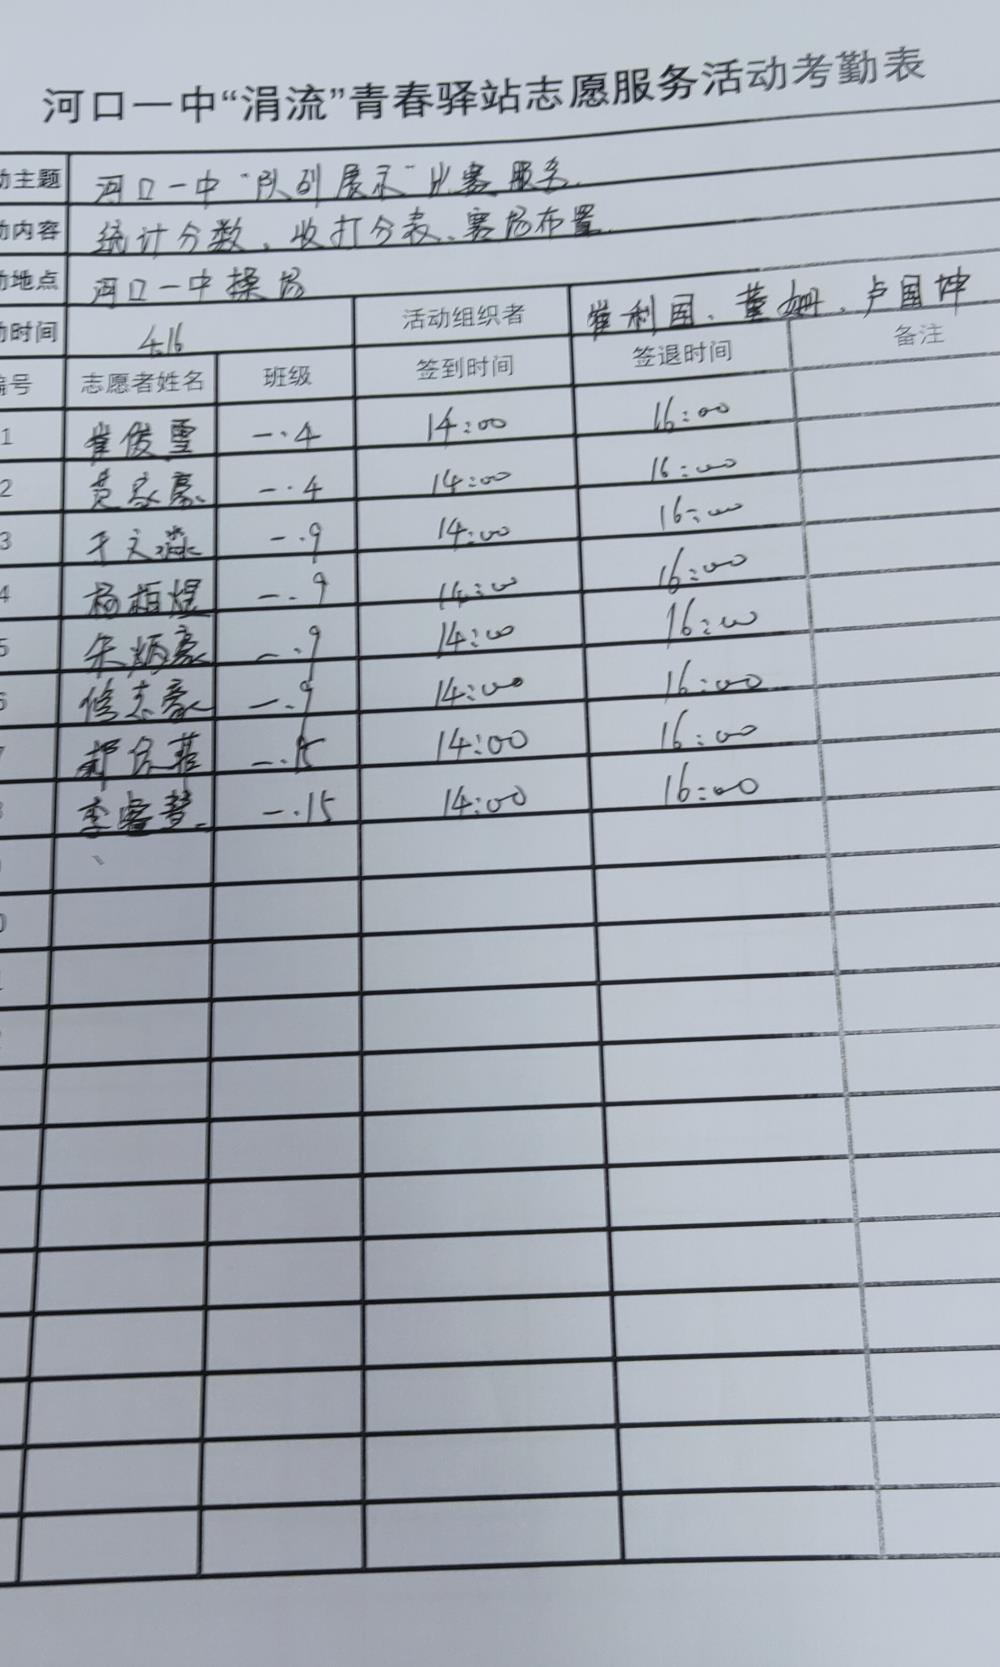 河口一中“涓流”青春驿站志愿服务活动考勤表
动主题 河口一中“队列展示”比赛服务.
动内容 统计分数、收打分表、赛场布置.
动地点 河口一中操场
动时间 4.16 活动组织者 崔利国、董姗、卢国坤
编号 志愿者姓名 班级 签到时间 签退时间 备注
1 崔俊雪 一.4 14:00 16:00
2 黄家豪 一.4 14:00 16:00
3 于文淼 一.9 14:00 16:00
4 杨栢煜 一.9 14:00 16:00
5 朱炳豪 一.9 14:00 16:00
6 修志豪 一.9 14:00 16:00
7 一.15 14:00 16:00
8 李睿梦 一.15 14:00 16:00
0